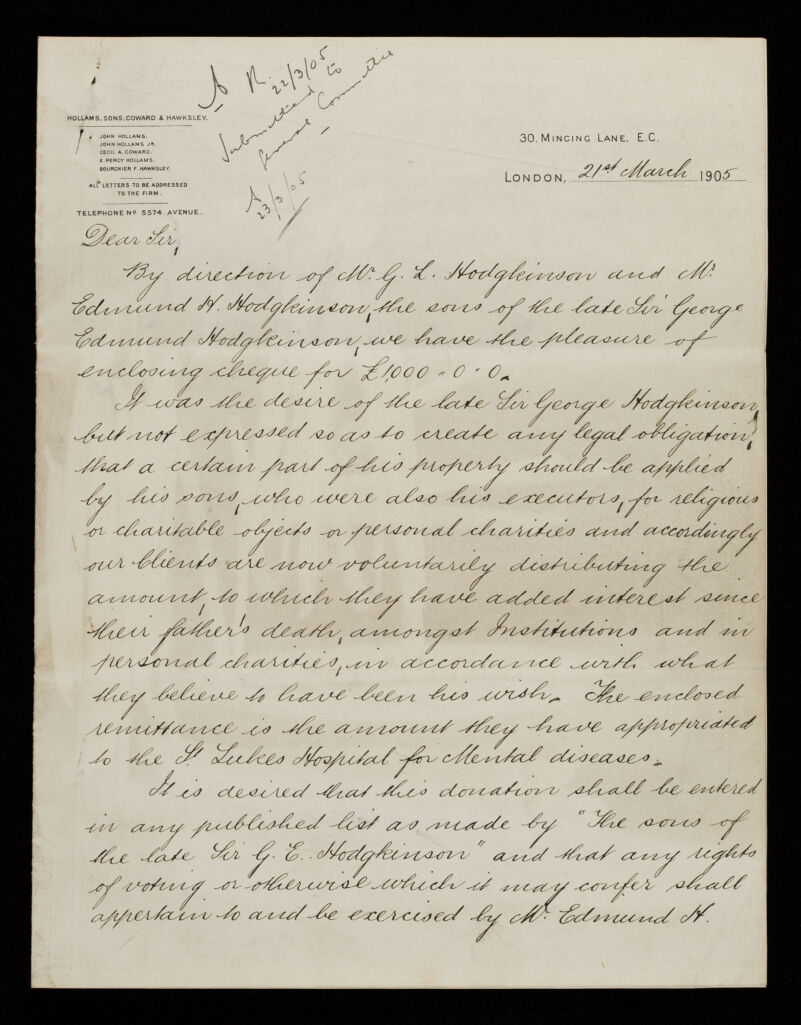 A R. 22/3/05
Submitted to
General Committee
A
23/3/05
HOLLAMS, SONS, COWARD & HAWKSLEY.
JOHN HOLLAMS.
JOHN HOLLAMS JR.
CECIL A. COWARD.
E. PERCY HOLLAMS.
BOURCHIER F. HAWKSLEY.
ALL LETTERS TO BE ADDRESSED
TO THE FIRM.
TELEPHONE No 5574 AVENUE.
30, MINCING LANE, E.C.
LONDON, 21st March 1905
Dear Sir,
By direction of Mr. G. L. Hodgkinson and Mr.
Edmund H. Hodgkinson, the sons of the late Sir George
Edmund Hodgkinson, we have the pleasure of
enclosing cheque for £1,000 " 0 " 0.
It was the desire of the late Sir George Hodgkinson,
but not expressed so as to create any legal obligation,
that a certain part of his property should be applied
by his sons, who were also his executors, for religious
or charitable objects or personal charities and accordingly
our Clients are now voluntarily distributing the
amount, to which they have added interest since
their father's death, amongst Institutions and in
personal charities, in accordance with what
they believe to have been his wish. The enclosed
remittance is the amount they have appropriated
to the St. Lukes Hospital for Mental diseases.
It is desired that this donation shall be entered
in any published list as made by "The sons of
the late Sir G. E. Hodgkinson" and that any rights
of voting or otherwise which it may confer shall
appertain to and be exercised by Mr. Edmund H.